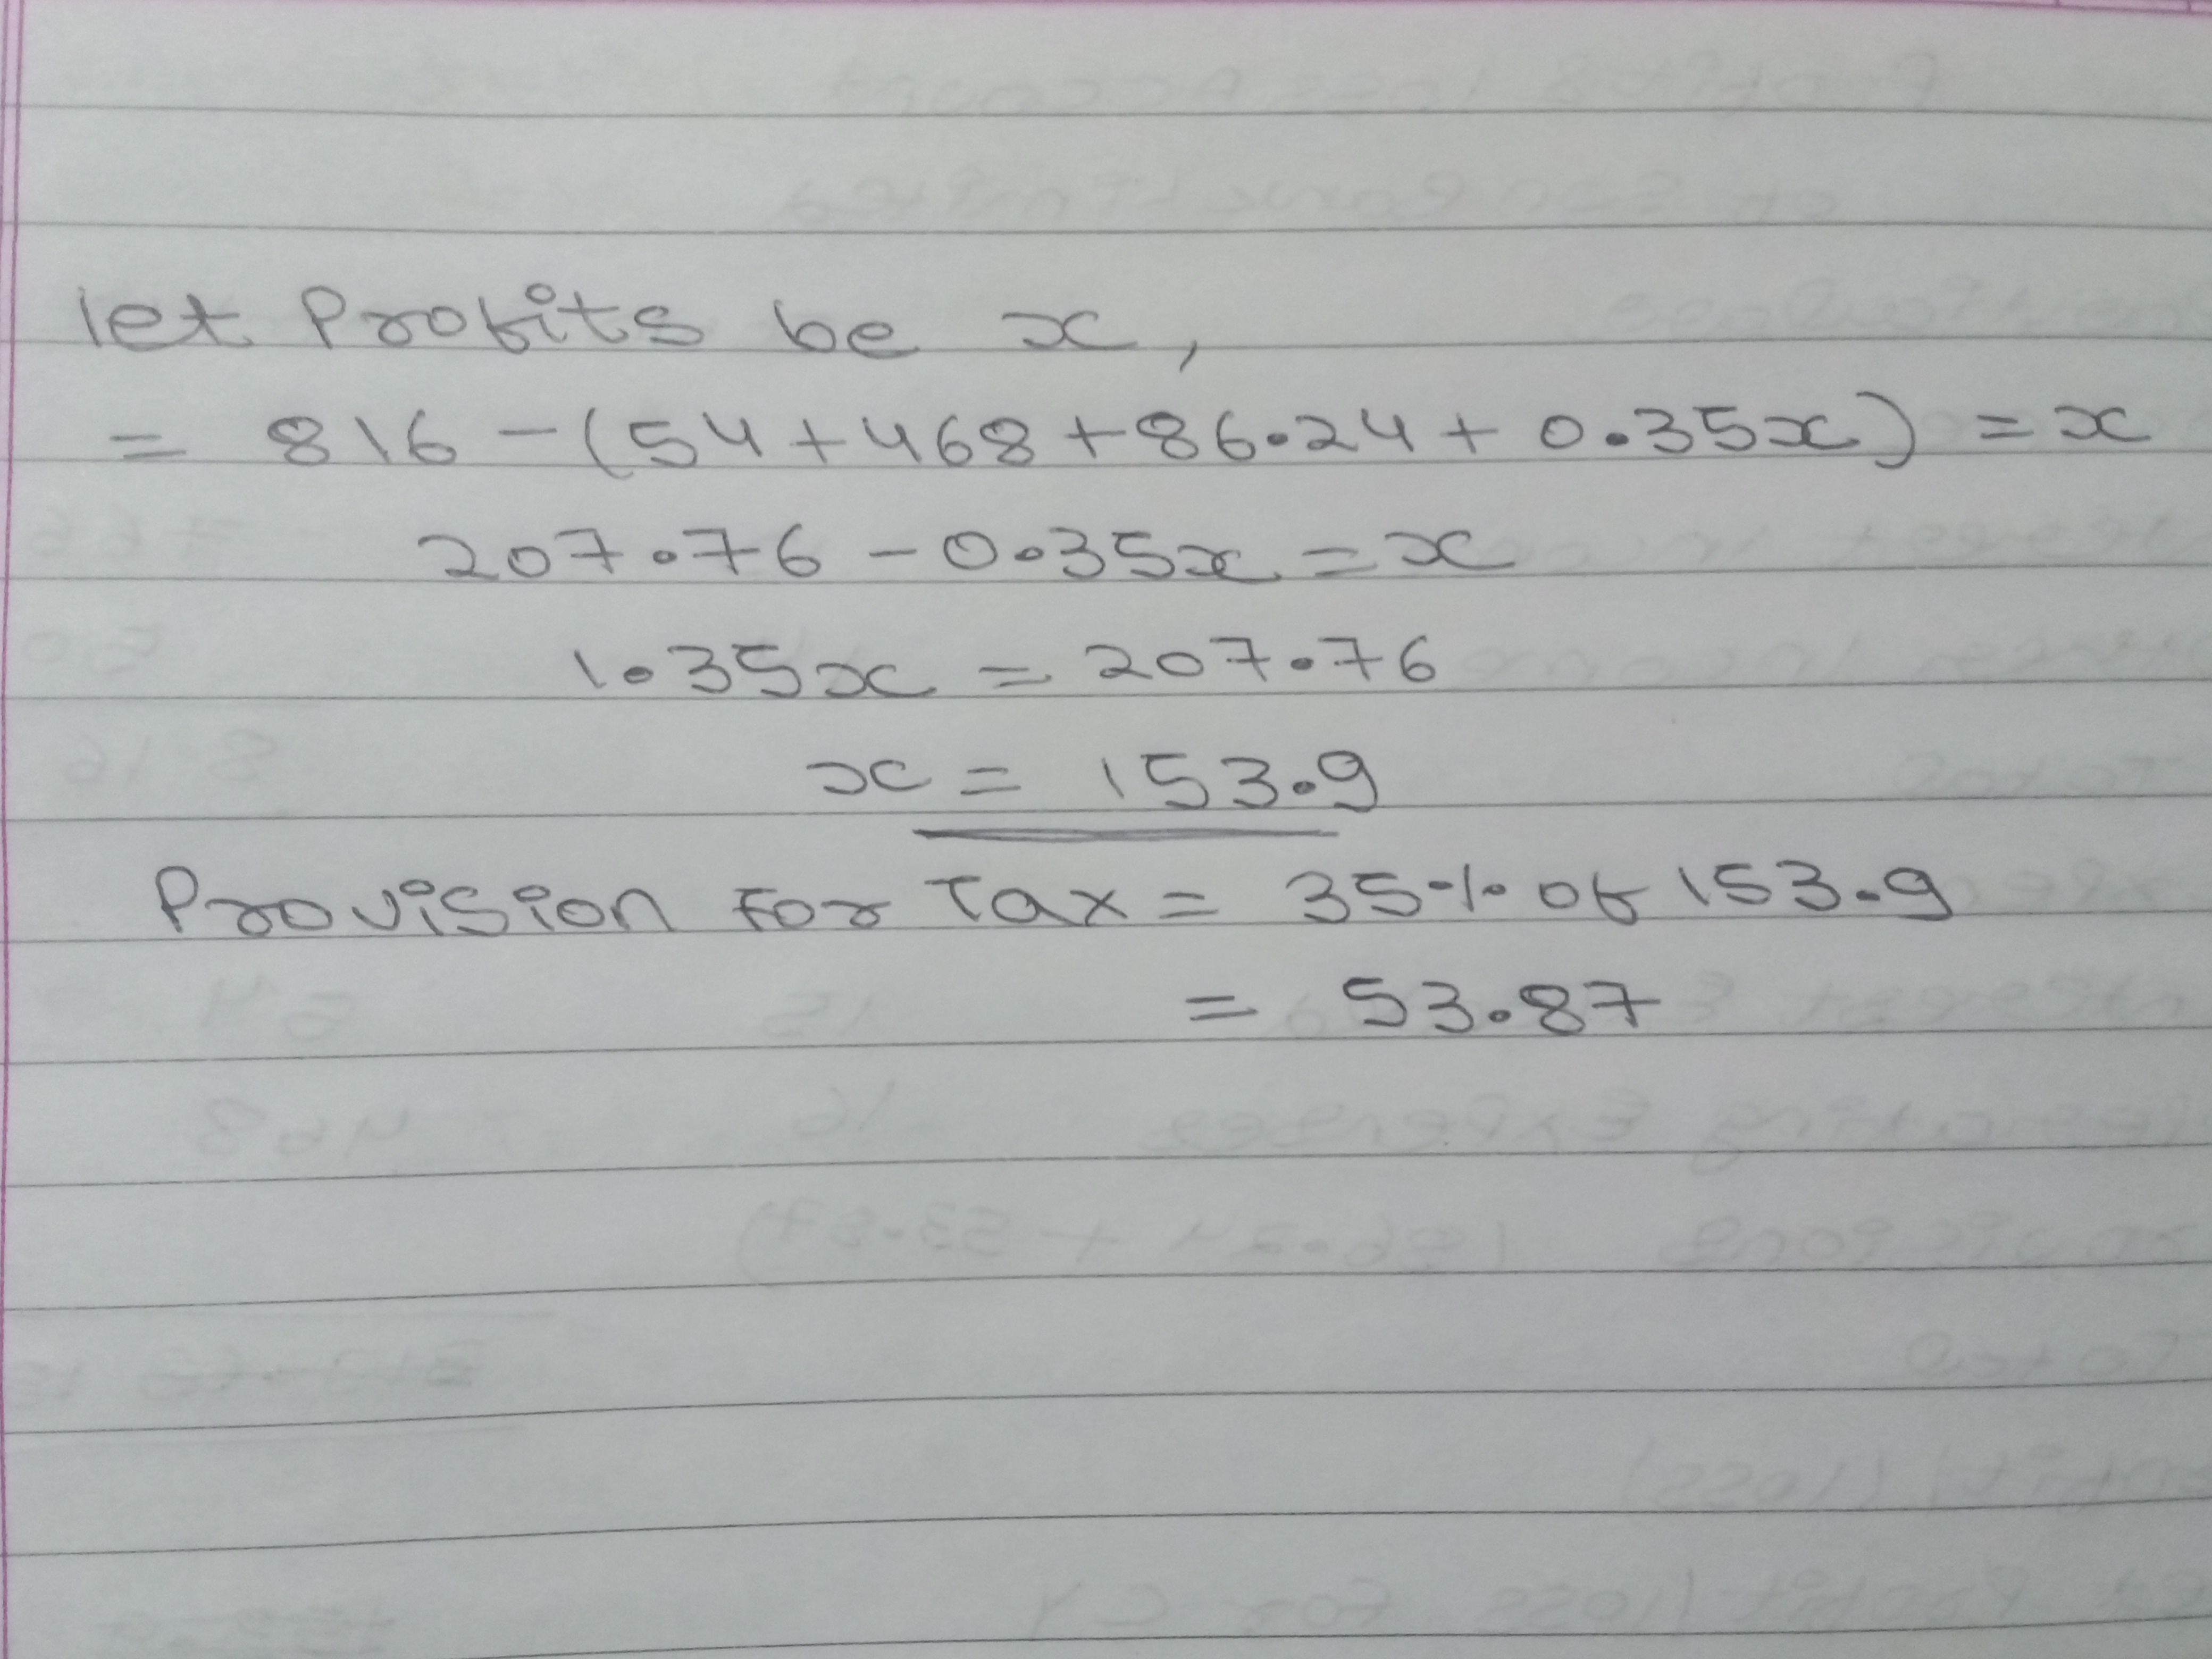 let Profits be x,
= 816 - (54 + 468 + 86.24 + 0.35x) = x
207.76 - 0.35x = x
1.35x = 207.76
x = 153.9
Provision For Tax = 35% of 153.9
= 53.87